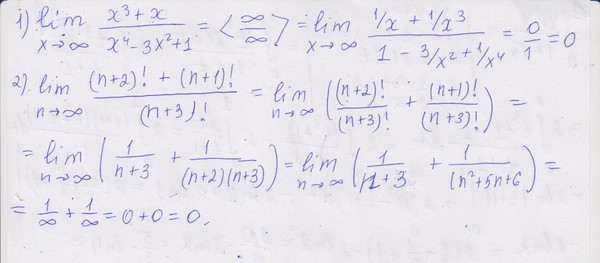 1) lim x→∞ (x³+x)/(x⁴-3x²+1) = <∞/∞> = lim x→∞ (1/x + 1/x³)/(1 - 3/x² + 1/x⁴) = 0/1 = 0
2). lim n→∞ ((n+2)! + (n+1)!)/(n+3)! = lim n→∞ ((n+2)!/(n+3)! + (n+1)!/(n+3)!) =
= lim n→∞ (1/(n+3) + 1/((n+2)(n+3))) = lim n→∞ (1/(n+3) + 1/(n²+5n+6)) =
= 1/∞ + 1/∞ = 0+0=0,